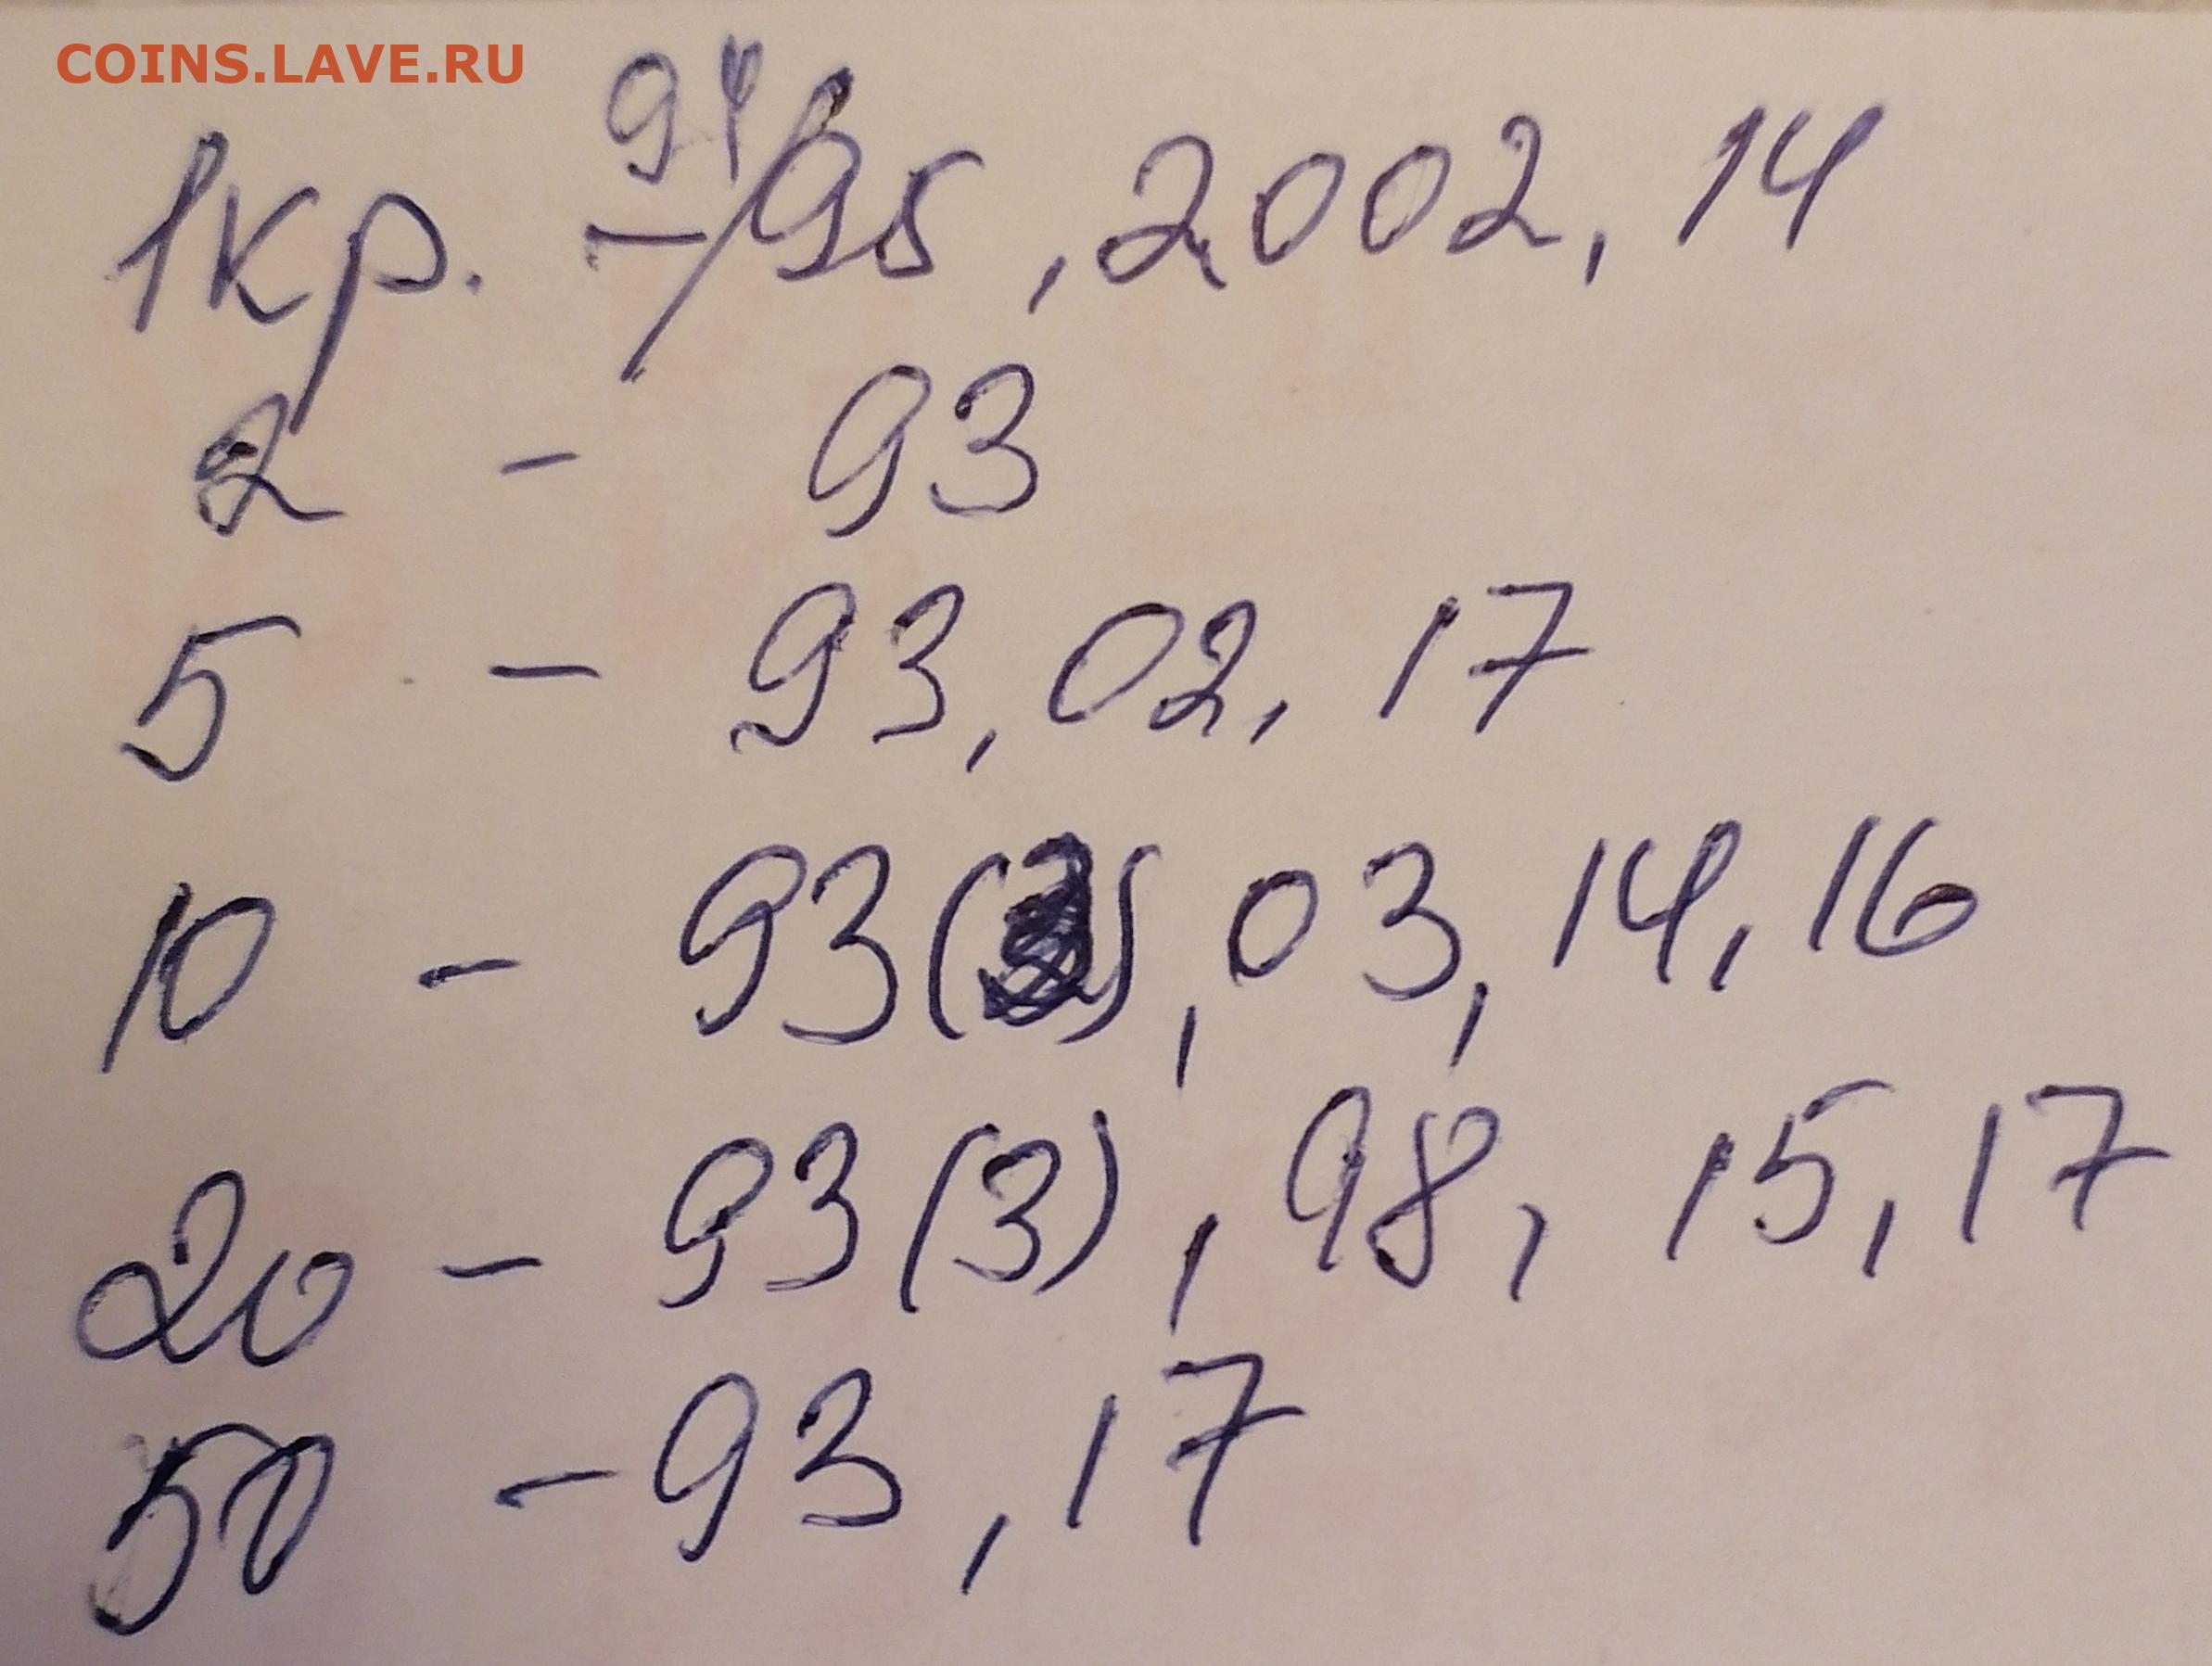 COINS.LAVE.RU
94
1кр. - /95, 2002, 14
2 - 93
5 - 93, 02, 17
10 - 93( ), 03, 14, 16
20 - 93(3), 98, 15, 17
50 - 93, 17